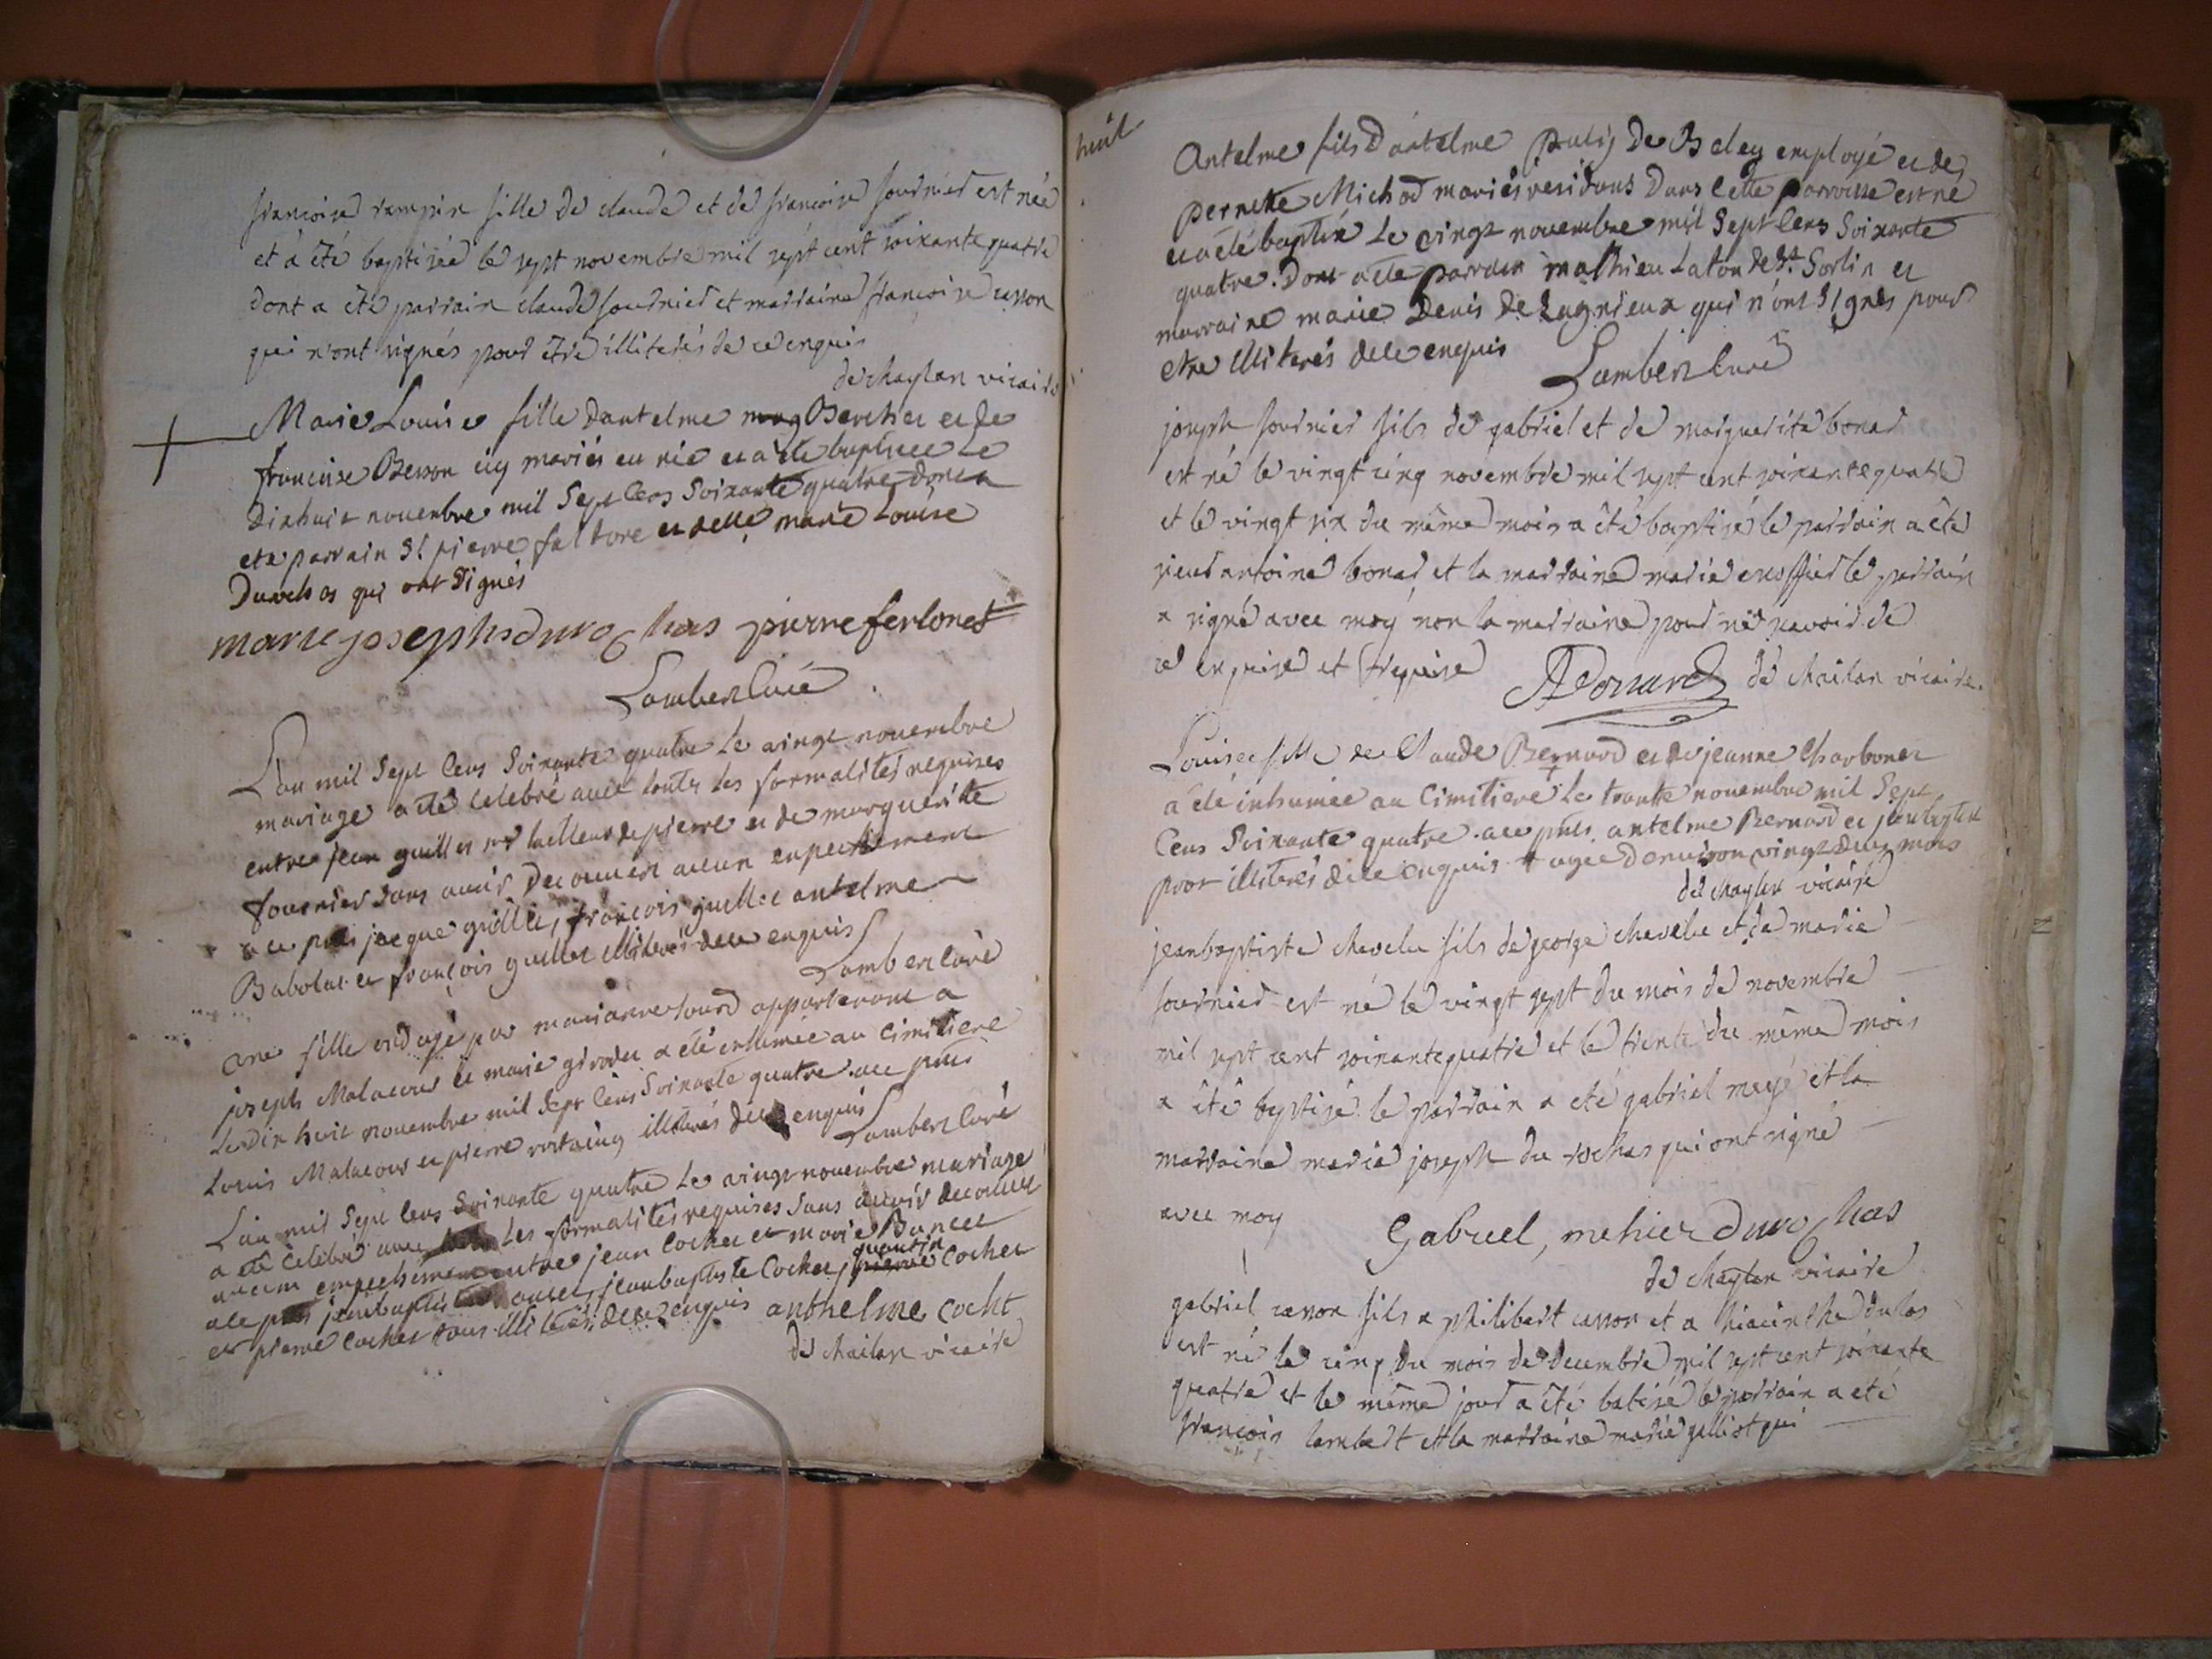 françoise rampin fille de claude et de françoise fournier est née
et à été baptisée le sept novembre mil sept cent soixante quatre
dont a été parrain claude fournier et marraine françoise casson
qui n'ont signés pour être illiterés de ce enquis
de chaylan vicaire
Marie Louise fille dantelme Berchet et de
francoise Besson icy mariés eu née et a été baptisee Le
dixhuit novembre mil Sept Cens Soixante quatre dont a
ete parrain Sr pierre et delle marie Louise
Durochas qui ont Signés
marie josephs durochas pierre ferlonet
Lambert Curé
L'an mil Sept Cens Soixante quatre Le vingt novembre
mariage a été Celebré avec toutes les formalités requises
entre jean guillet tailleur de pierre et de marguerite
fournier sans avoir decouvert aucun enpechement
a ce pnts jacque guillet, françois guillet antelme
Babolat et françois guillet illiterés de ce enquis
Lambert Curé
ane fille par marianne apartenant a
joseph Malacour et marie girodet a été inhumée au Cimitiere
Le dix huit novembre mil Sept Cens Soixante quatre. a ce pnts
Louis Malacour et pierre illiterés de ce enquis
Lambert Curé
L'an mil Sept Cens Soixante quatre Le vingt novembre mariage
a été Celebré avec Les formalités requises Sans avoir decouvert
aucun empechement entre jean Cochet et marie Bancet
a ce pnts jeanbaptiste jeanbaptiste Cochet, quantin Cochet
et pierre Cochet tous illiterés de ce enquis anthelme Cocht
de chailan vicaire
huit
Antelme fils D'antelme de Beley employé et de
pernette Michod mariés residans Dans Cette parroisse est né
et a été baptisé Le vingt novembre mil Sept Cens Soixante
quatre. Dont a été parrain mathieu Laton de St. Sorlin et
marraine marie Denis de Lagnieux qui n'ont Signés pour
etre illiterés de ce enquis
Lambert Curé
joseph fournier fils de gabriel et de marguerite bonar
est né le vingt cinq novembre mil sept cent soixante quatre
et le vingt six du même mois a été baptisé le parrain a été
sieur antoine bonar et la marraine marie le parrain
a signé avec moy non la marraine pour ne sçavoir de
ce enquise et requise
ABonard de chailan vicaire.
Louise fille de Claude Bernard et de jeanne Charbonet
a été inhumée au Cimitiere Le trante novembre mil Sept
Cens Soixante quatre. a ce pnts antelme Bernard et
pour illiterés de ce enquis + agée d'environ vingt deux mois
de chaylan vicaire
jeanbaptiste chevelu fils de george chevelu et de marie
fournier est né le vingt sept du mois de novembre
mil sept cent soixante quatre et le trente du même mois
a été baptisé. le parrain a été gabriel meyé et la
marraine marie joseph du rochas qui ont signé
avec moy
Gabriel, mehier durochas
de chaylan vicaire
gabriel casson fils a philibert casson et a hiacinthe dulos
est né le cinq du mois de decembre mil sept cent soixante
quatre et le même jour a été batisé le parrain a été
françois lambert et la marraine marie galliot qui